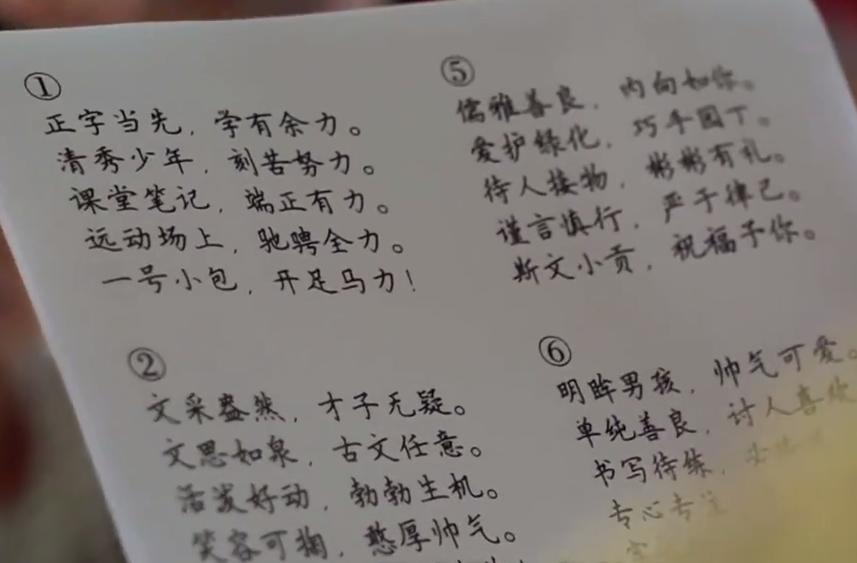 ①
正字当先，学有余力。
清秀少年，刻苦努力。
课堂笔记，端正有力。
远动场上，驰骋全力。
一号小包，开足马力！
②
文采盎然，才子无疑。
文思如泉，古文任意。
活泼好动，勃勃生机。
笑容可掬，憨厚帅气。
⑤
儒雅善良，内向如你。
爱护绿化，巧手园丁。
待人接物，彬彬有礼。
谨言慎行，严于律己。
斯文小贡，祝福予你。
⑥
明眸男孩，帅气可爱。
单纯善良，讨人喜欢
书写待练，
专心专注